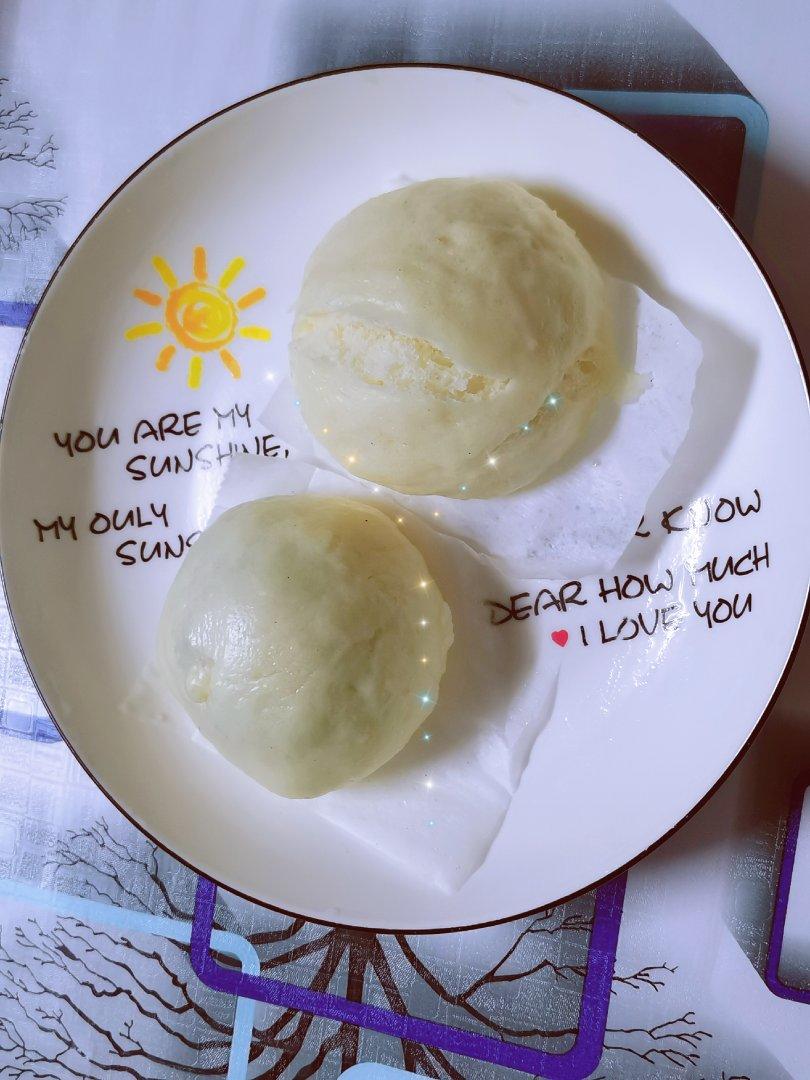 YOU ARE MY
SUNSHINE,
MY OULY
KNOW
DEAR HOW MUCH
I LOVE YOU